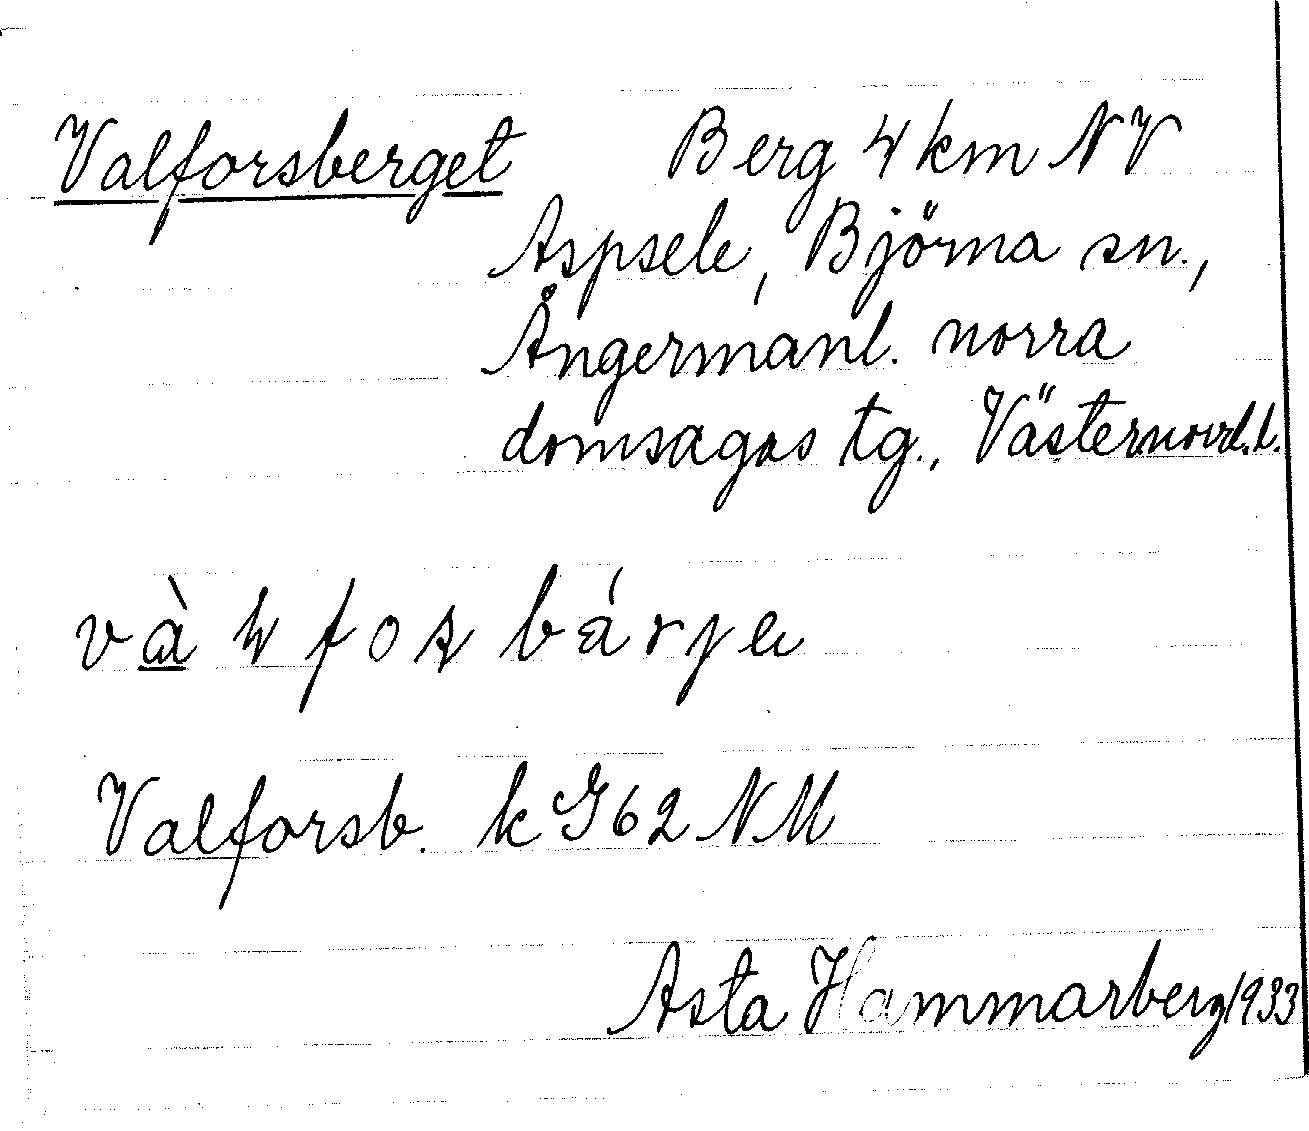 Valforsberget Berg 4 km NV
Aspsele, Björna sn.,
Ångermanl. norra
domsagas tg., Västernorrl. l.
Valforsb. k G62 NM
Asta Hammarberg 1933